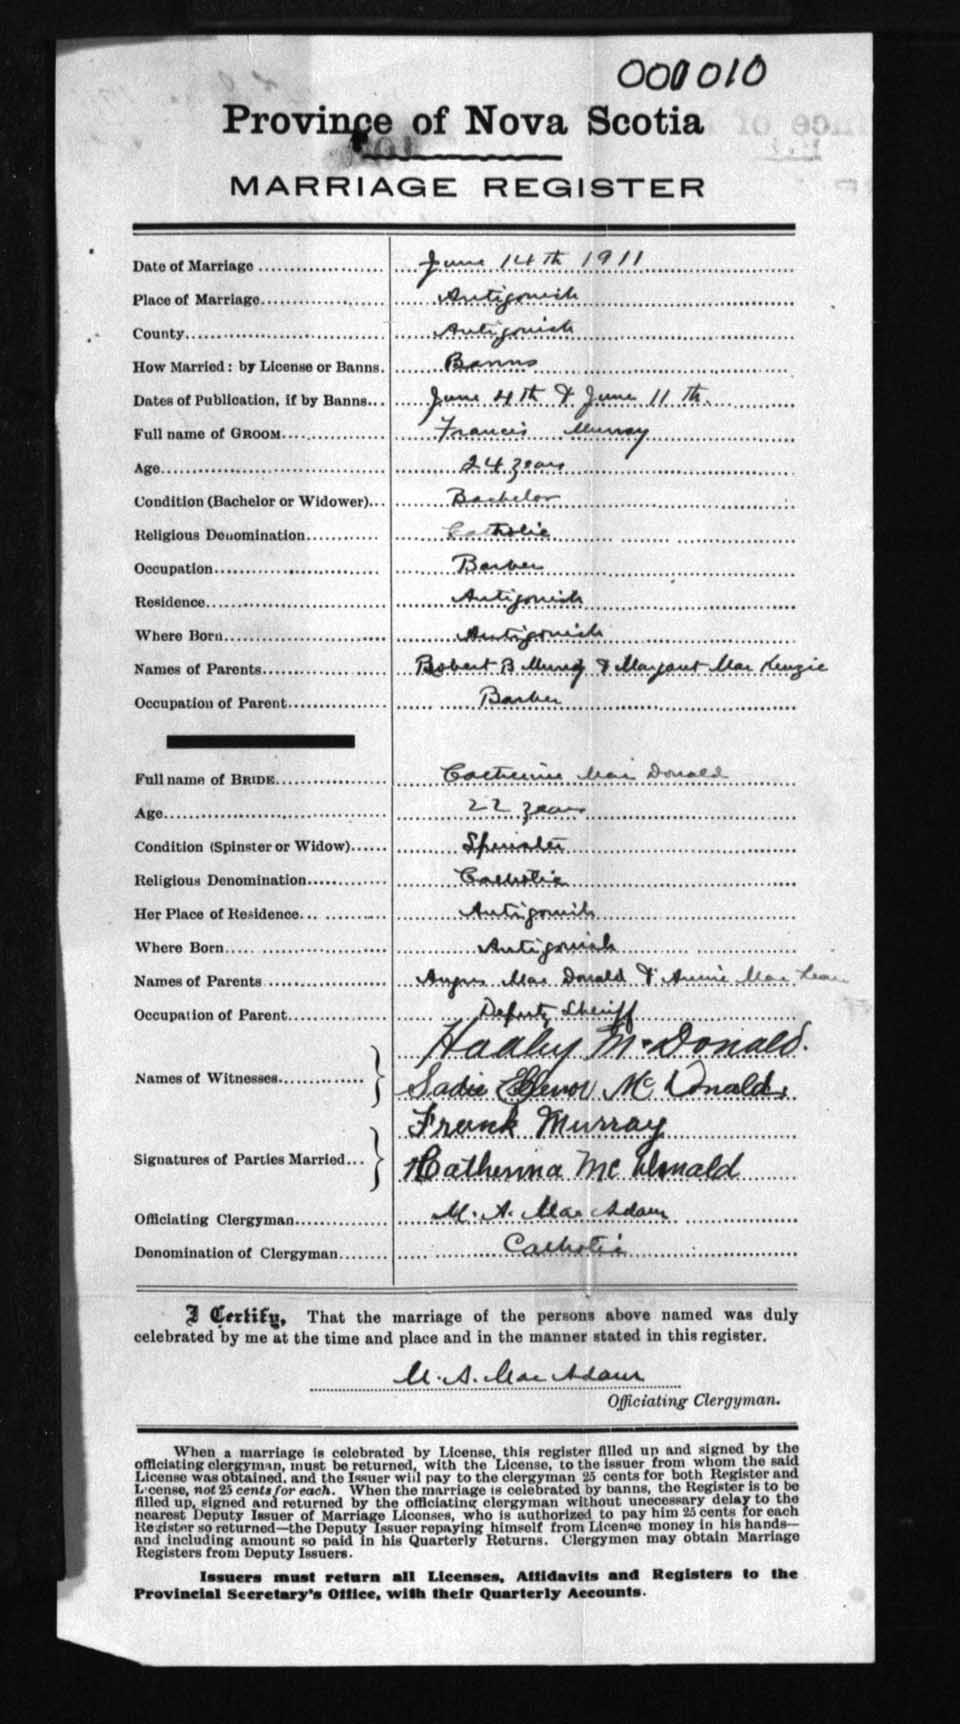 000010
Province of Nova Scotia
MARRIAGE REGISTER
Date of Marriage June 14th 1911
Place of Marriage Antigonish
County Antigonish
How Married: by License or Banns. Banns
Dates of Publication, if by Banns June 4th & June 11th.
Full name of GROOM Francis Murray
Age 24 years
Condition (Bachelor or Widower) Bachelor
Religious Denomination Catholic
Occupation Barber
Residence Antigonish
Where Born Antigonish
Names of Parents Robert B Murray & Margaret Mac Kenzie
Occupation of Parent Barber
Full name of BRIDE Catherine Mac Donald
Age 22 years
Condition (Spinster or Widow) Spinster
Religious Denomination Catholic
Her Place of Residence Antigonish
Where Born Antigonish
Names of Parents Angus Mac Donald & Annie Mac Lean
Occupation of Parent Deputy Sheriff
McDonald.
Names of Witnesses
Sadie McDonald
Frank Murray
Signatures of Parties Married
Catherina McDonald
Officiating Clergyman M. A. MacAdam
Denomination of Clergyman Catholic
I Certify, That the marriage of the persons above named was duly
celebrated by me at the time and place and in the manner stated in this register.
M. A. MacAdam
Officiating Clergyman.
When a marriage is celebrated by License, this register filled up and signed by the
officiating clergyman, must be returned, with the License, to the issuer from whom the said
License was obtained, and the Issuer will pay to the clergyman 25 cents for both Register and
License, not 25 cents for each. When the marriage is celebrated by banns, the Register is to be
filled up, signed and returned by the officiating clergyman without unnecessary delay to the
nearest Deputy Issuer of Marriage Licenses, who is authorized to pay him 25 cents for each
Register so returned—the Deputy Issuer repaying himself from License money in his hands—
and including amount so paid in his Quarterly Returns. Clergymen may obtain Marriage
Registers from Deputy Issuers.
Issuers must return all Licenses, Affidavits and Registers to the
Provincial Secretary's Office, with their Quarterly Accounts.